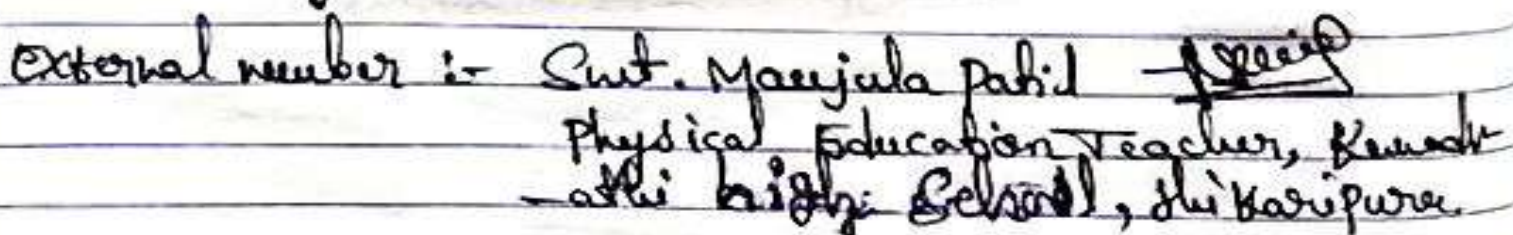 External member :- Smt. Manjula Patil
Physical Education Teacher, Kumadv
-athi high School, Shikaripura.